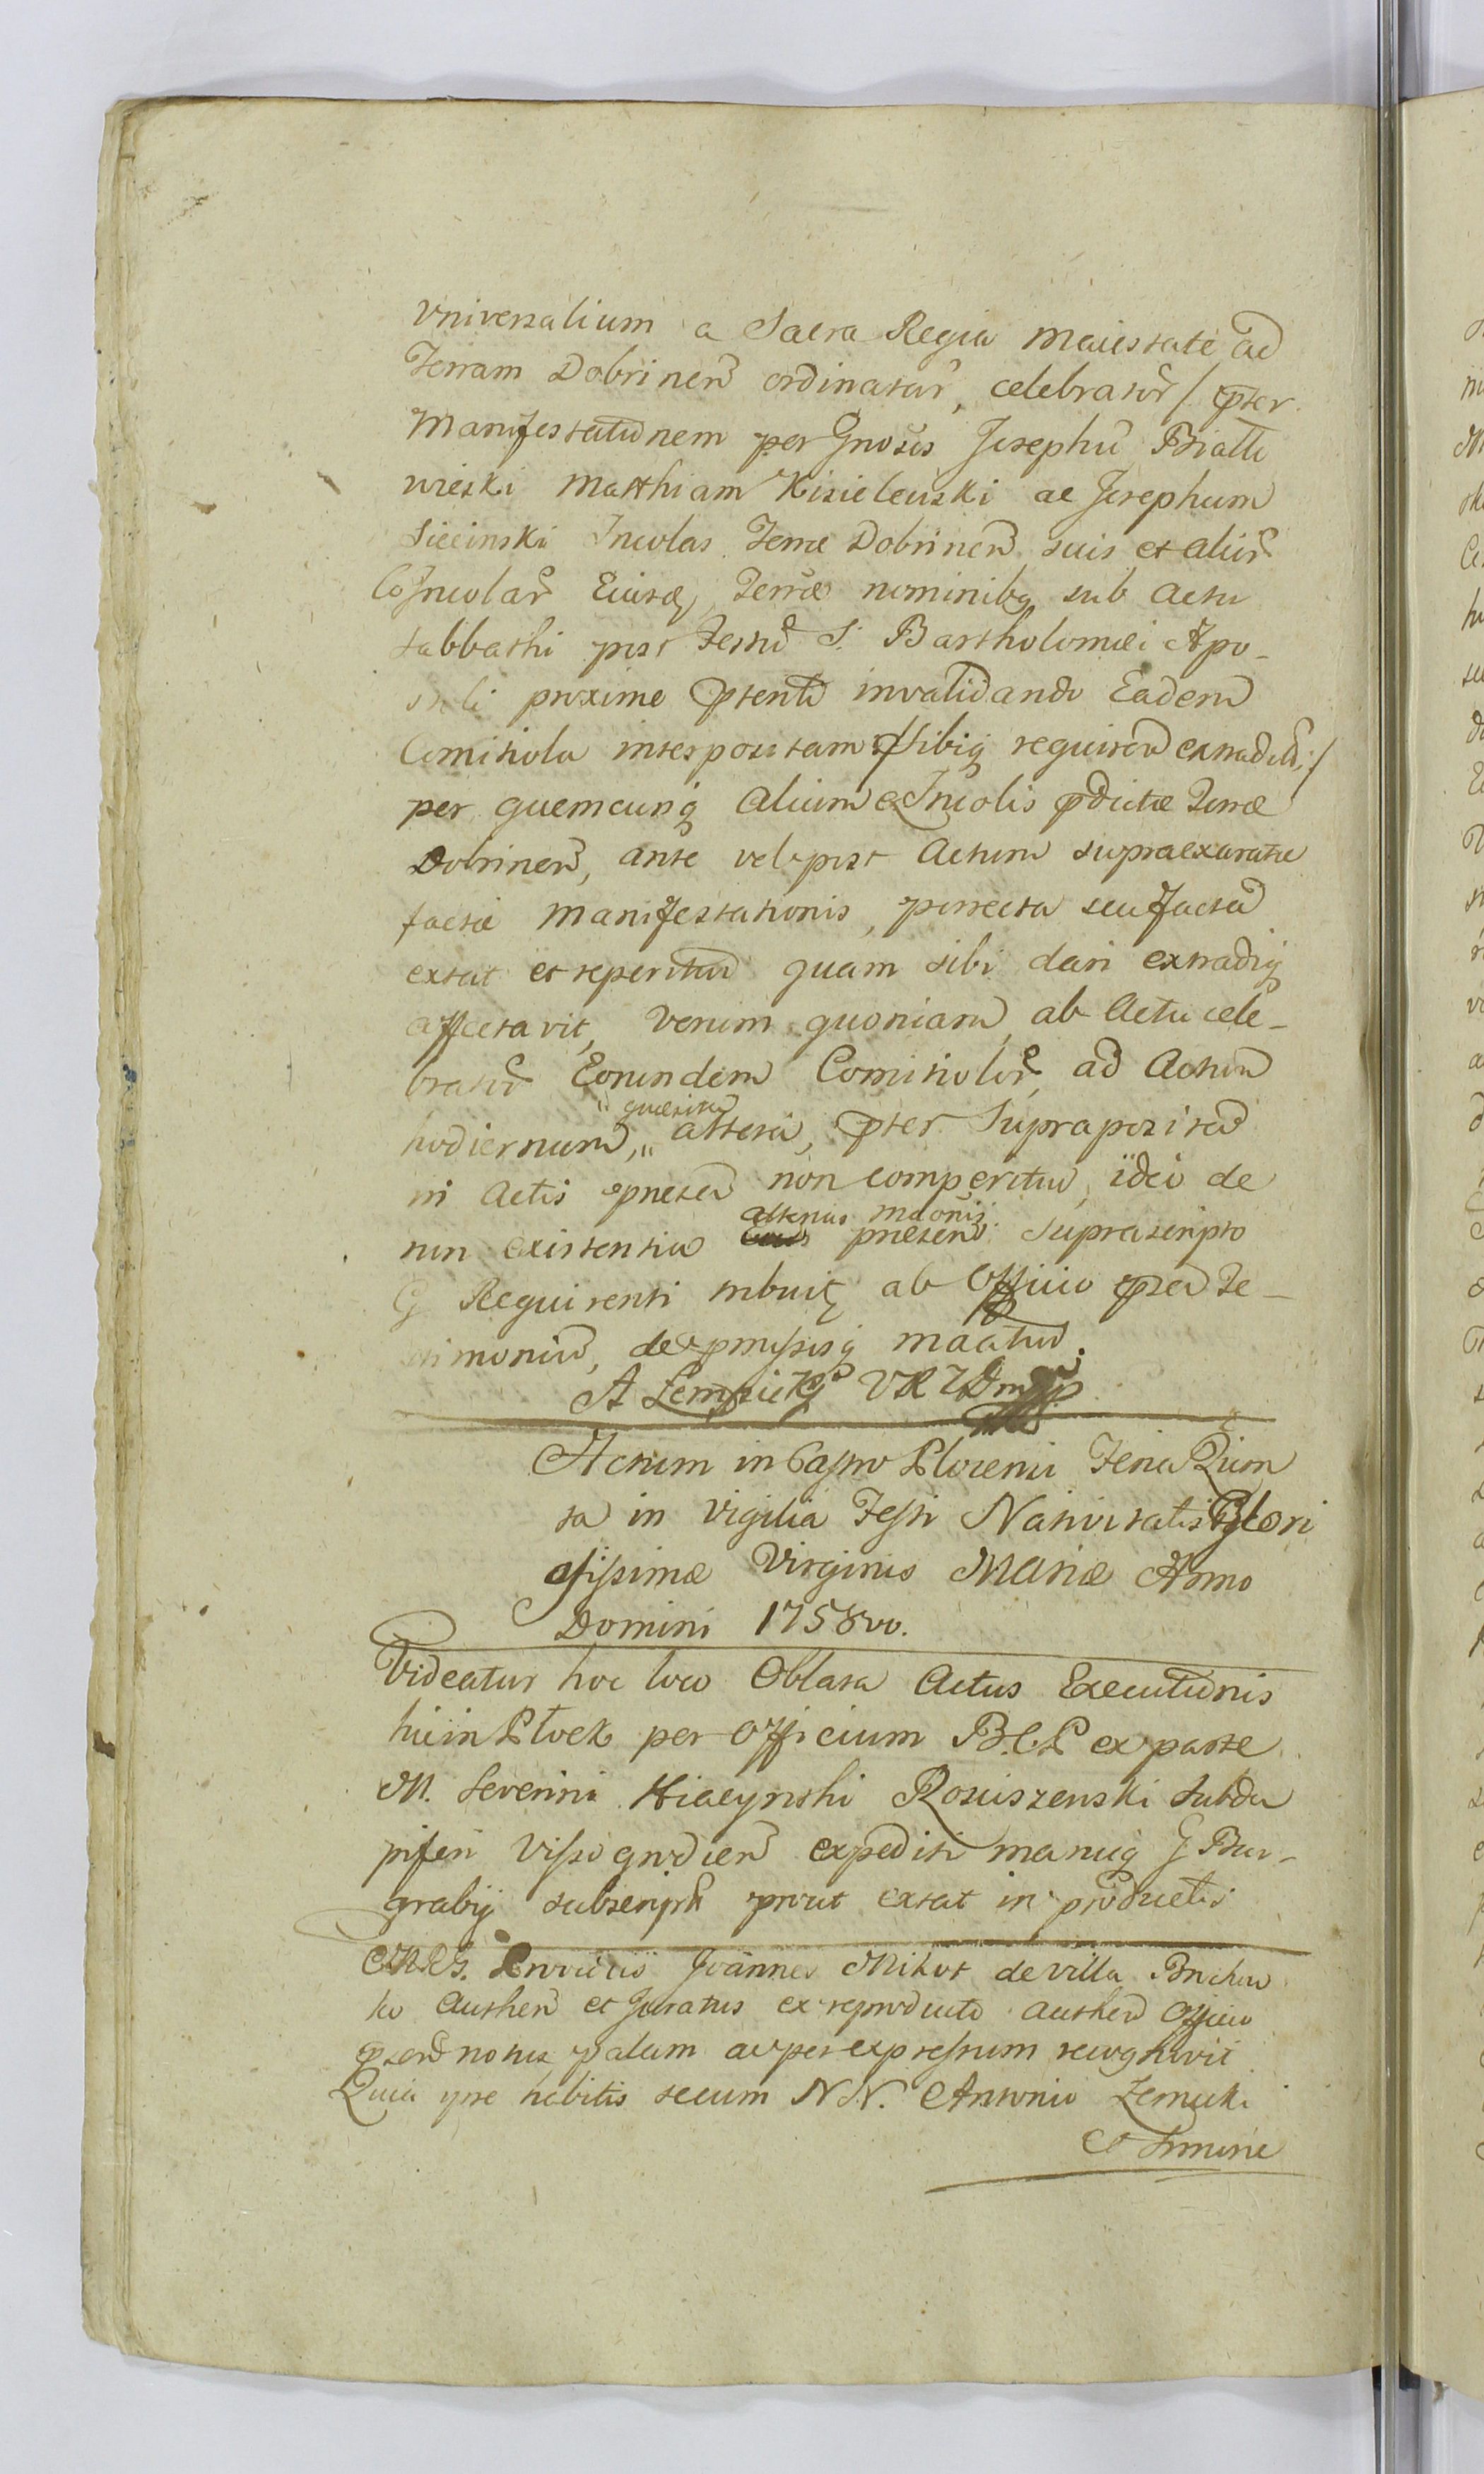 Universalium a Sacra Regia Maiestate ad
Terram Dobrinen ordinatar, celebrator / pter
Manifestationem per Gnosos Josephu Biallo
wieski Matthiam Kisielewski ac Josephum
Siecinski Incolas Terræ Dobrinen suis et alior
CoIncolar Eiusd Terræ nominibq sub Actu
Sabbathi post Festu S. Bartholomæi Apo-
stoli proxime pterito invalidando Eadem
Comitiola interpositam sibiq requiren extradid /
per quemcunq alium ex Incolis pdictæ Terræ
Dobrinen, ante vel post Actum supraexaratæ
factæ Manifestationis, porrecta seu facta
extat et reperitur quam sibi dari extradiq
affectavit, Verum quoniam ab Actu cele-
brator Eorundem Comitiolor ad Actum
hodiernum, " quæsita altera, pter Suprapositā
in Actis pnetib non comperitur, ideo de
non existentia alterius Maonis pnetib Suprascripto
G Requirenti tribuit ab Officio pnti Te-
stimoniu, de pmissisq maatur.
A Lempicki VR
Actum in Castro Plocensi Feria Quin
ta in Vigilia Festi Nativitatis Glori
osissimæ Virginis Mariæ Anno
Domini 1758vo.
Videatur hoc loco Oblata Actus Executionis
hic in Płock per Officium B.C.P ex parte
M. Severini Hiacynthi Rosciszewski Subda
piferi Wissogrodien expediti manuq G Bur-
grabij subscripti prout extat in productis
Joannes Mikos de villa
ko Authen et Juratus ex reproducto authen Officio
palam ac per expressum recognovit
Quia ipse habitis secum NN. Antonio
et Simone